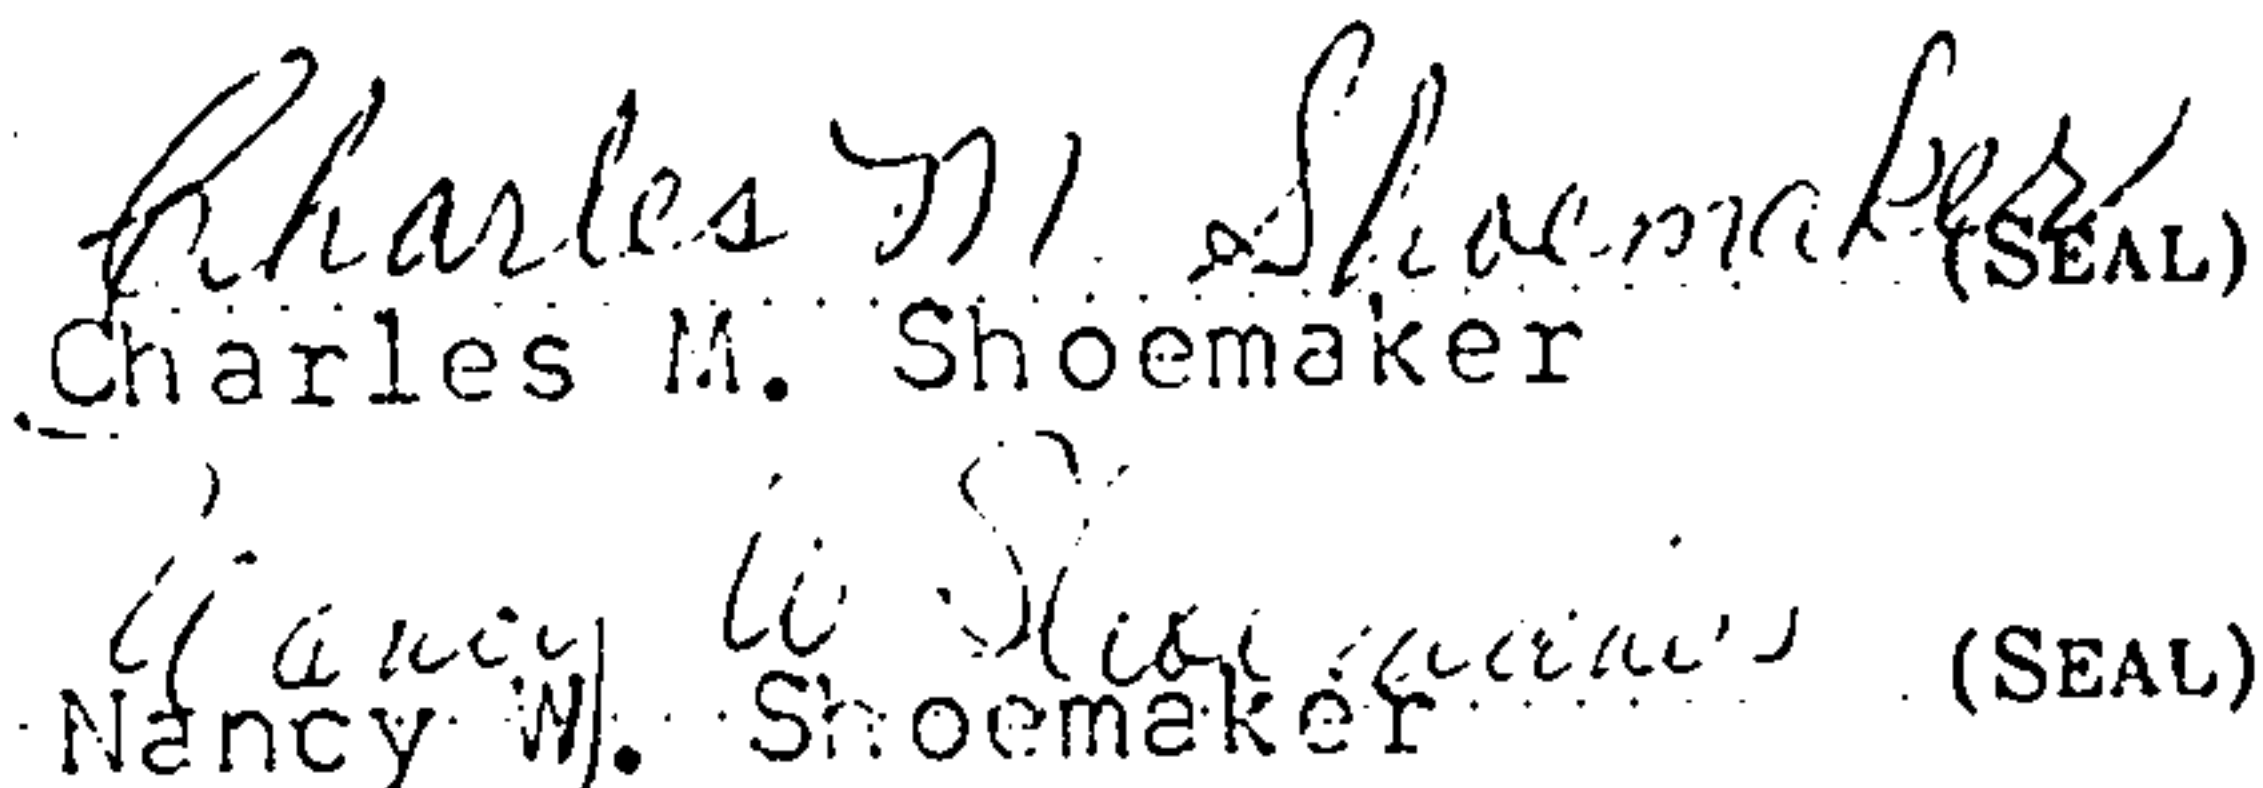 Charles M. Shoemaker (SEAL)
Charles M. Shoemaker
Nancy W. Shoemaker (SEAL)
Nancy W. Shoemaker